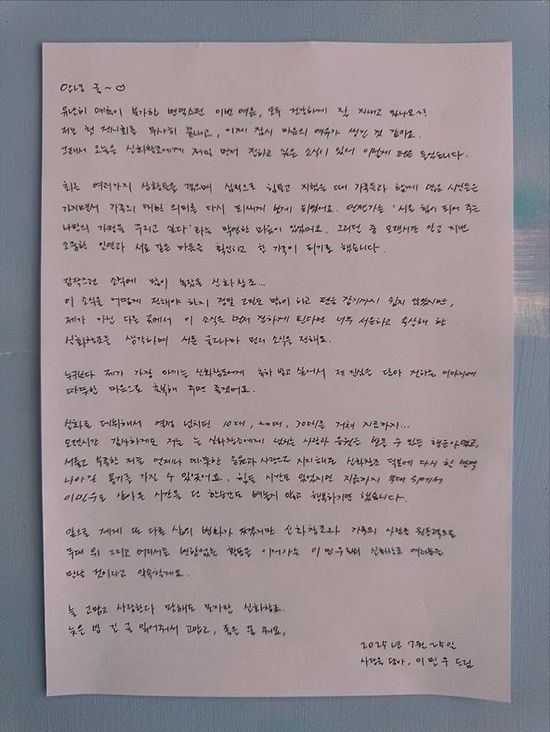 안녕 글~♡
유난히 더움이 불가한 변덕스런 이번 여름, 모두 건강하게 잘 지내고 있나요~?
저는 첫 전시회를 무사히 끝내고, 이제 잠시 마음의 여유가 생긴 것 같아요.
그래서 오늘은 신화창조에게 제일 먼저 전하고 싶은 소식이 있어 이렇게 펜을 들었습니다.
최근 여러가지 상황들을 겪으며 심적으로 힘들고 지쳤을 때 가족들과 함께 많은 시간을
가지면서 가족의 대한 의미를 다시 되새기게 되었어요. 언젠가는 '서로 힘이 되어 주는
나만의 가정을 꾸리고 싶다'라는 막연한 마음이 있었어요. 그러던 중 오랜시간 알고 지낸
소중한 인연과 서로 같은 마음을 확인하고 한 가족이 되기로 했습니다.
갑작스런 소식에 많이 놀랐을 신화창조...
이 소식을 어떻게 전해야 하지 정말 고민도 많이 하고 펜을 잡기까지 쉽지 않았지만,
제가 아닌 다른 곳에서 이 소식을 먼저 접하게 된다면 너무 서운하고 속상해 할
신화창조를 생각하며 서툰 글로나마 먼저 소식을 전해요.
누구보다 제가 가장 아끼는 신화창조에게 축하 받고 싶어서 제 진심을 담아 전하는 이야기에
따뜻한 마음으로 축복해 주면 좋겠어요.
신화로 데뷔해서 열정 넘치던 10대, 20대, 30대를 거쳐 지금까지...
오랜시간 감사하게도 저는 늘 신화창조에게 넘치는 사랑과 응원을 받을 수 있는 행운아였고,
서툴고 부족한 저를 언제나 따뜻한 응원과 사랑으로 지지해준 신화창조 덕분에 다시 한 번
나아갈 용기를 가질 수 있었어요. 힘든 시간도 있었지만 지금까지 무대 위에서
이민우로 살아온 시간을 단 한순간도 빼놓지 않고 행복하기만 했습니다.
앞으로 제게 또 다른 삶의 변화가 찾겠지만 신화창조와 가족의 사랑을 원동력으로
무대 위 그리고 어디서든 변함없는 활동을 이어가는 이민우로 신화창조 여러분을
만날 것이라고 약속할게요.
늘 고맙고 사랑한다 말해도 모자랄, 신화창조.
늦은 밤 긴 글 읽어줘서 고맙고, 좋은 꿈 꿔요,
2025년 7월 25일
사랑을 담아, 이민우 드림